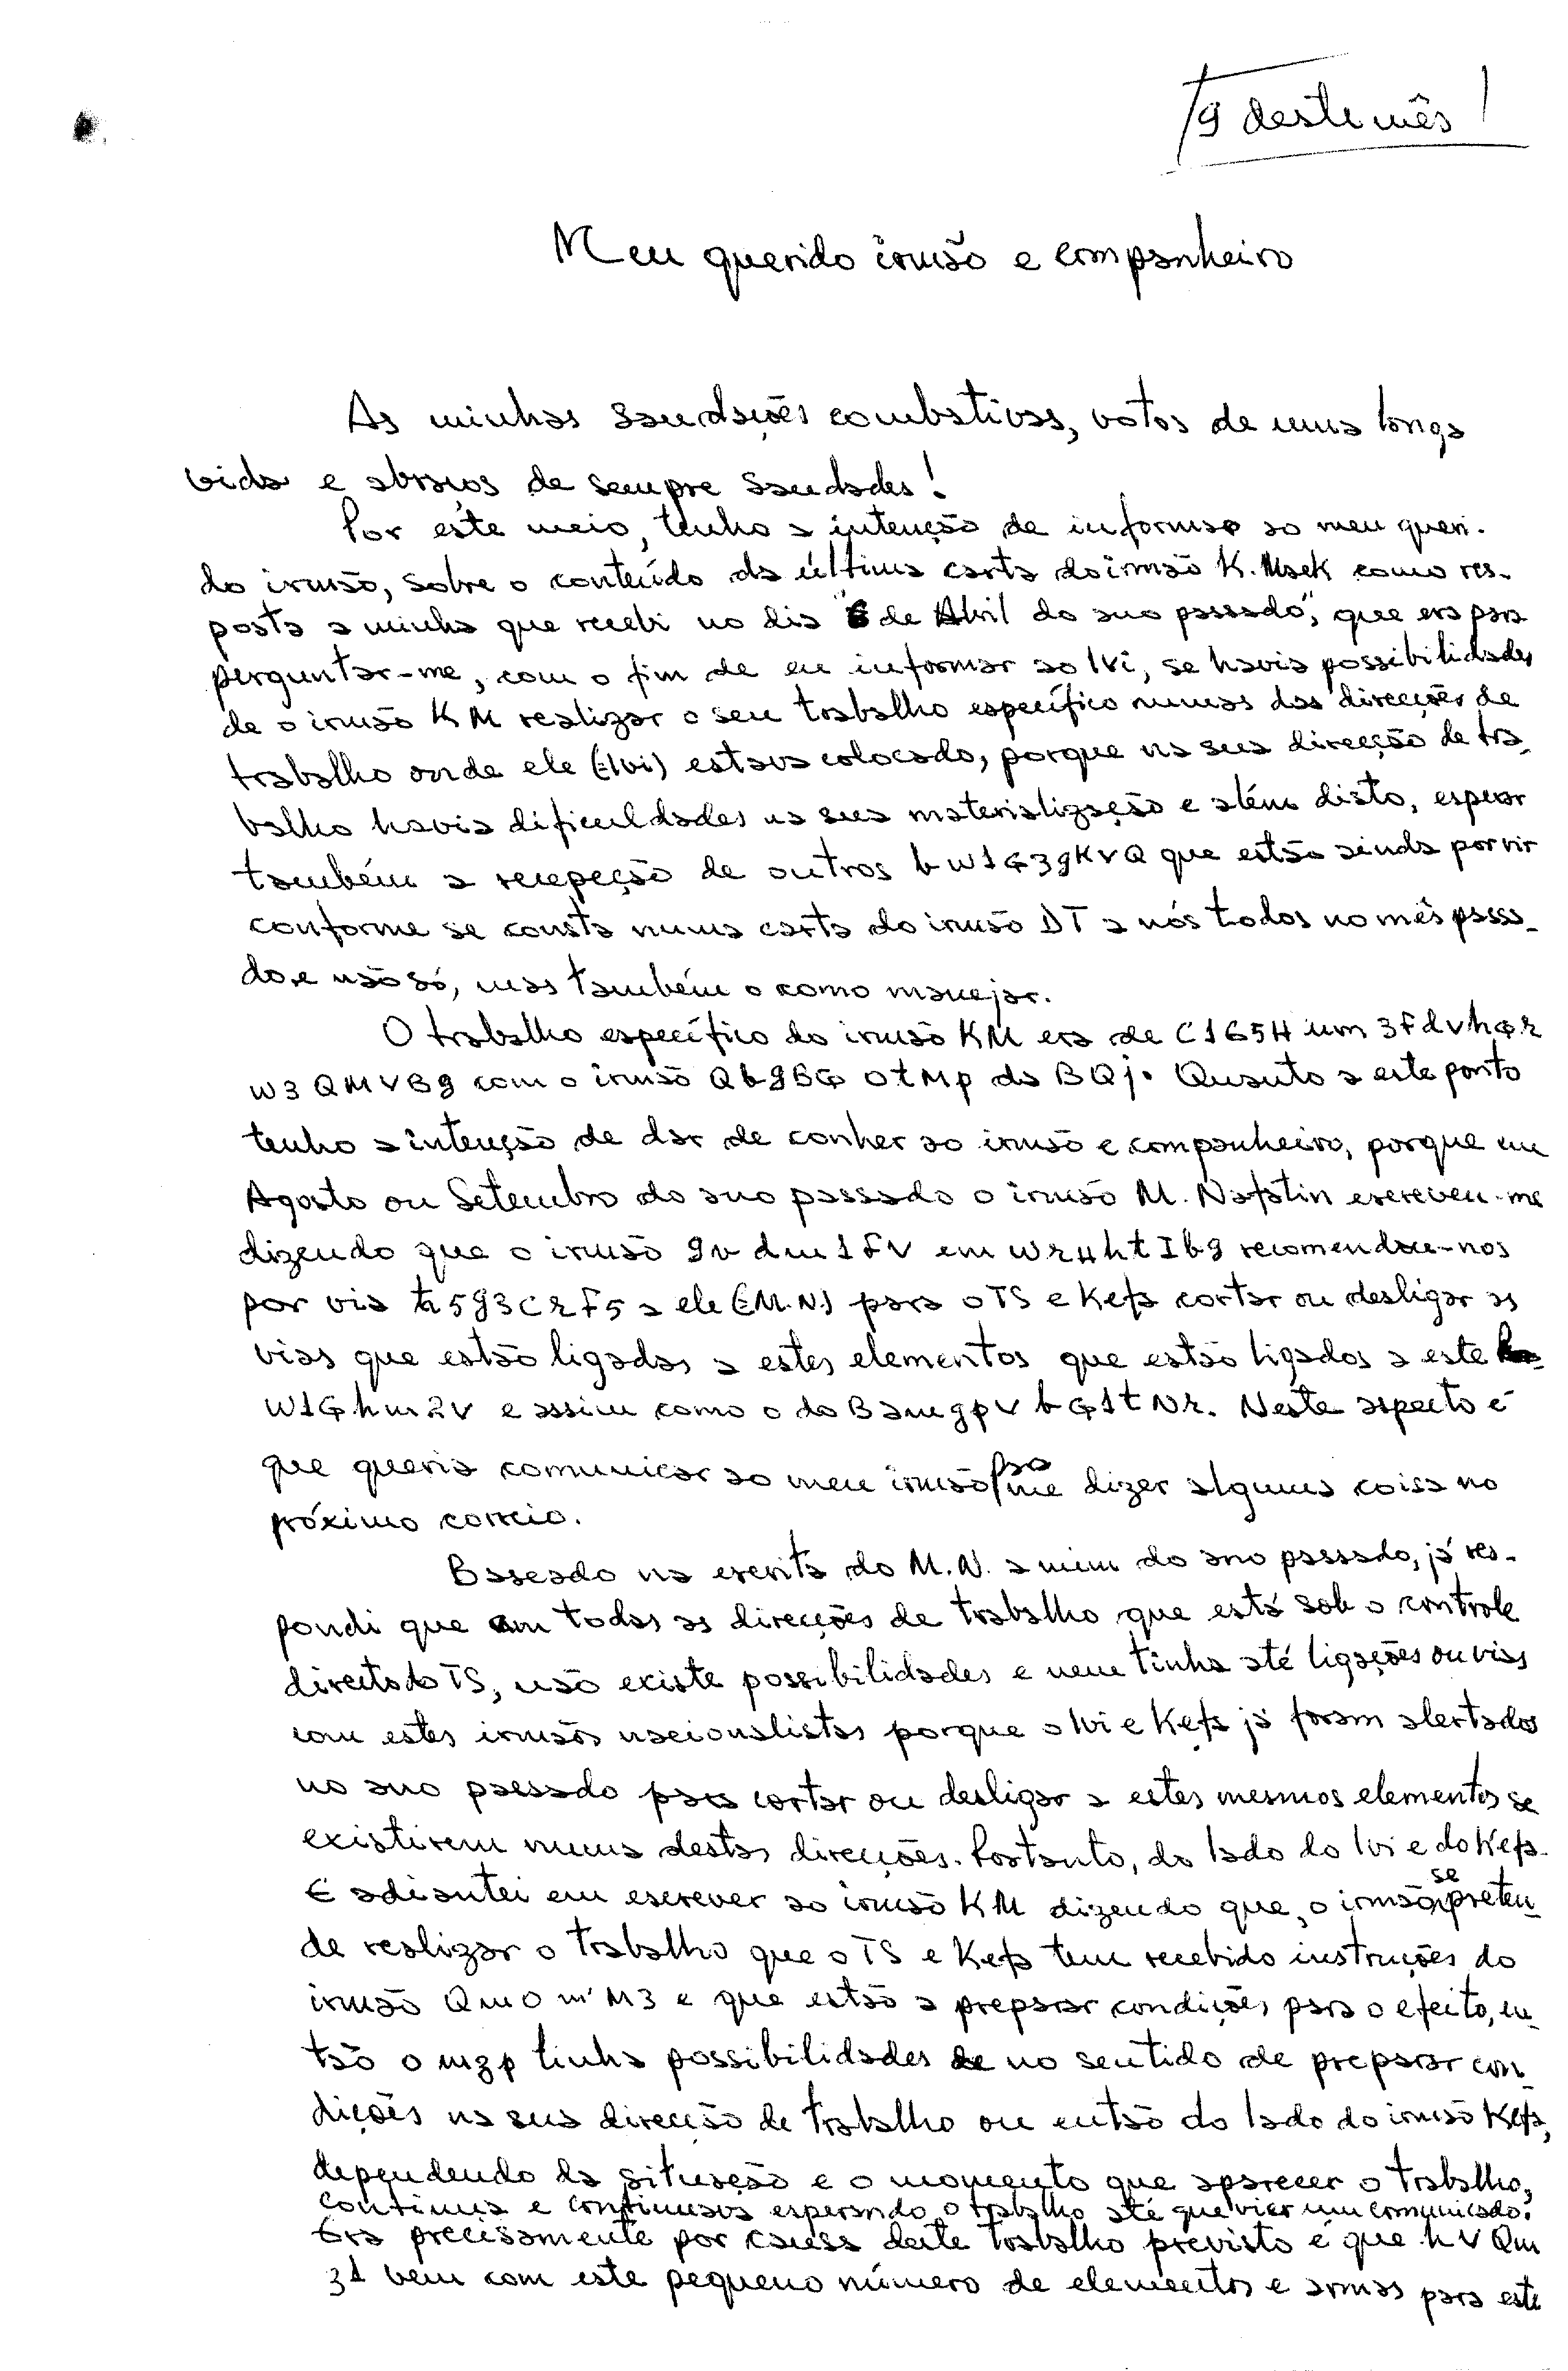 9 deste mês!
Meu querido irmão e companheiro
As minhas saudações combativas, votos de uma longa
vida e abraços de sempre saudades!
Por este meio, tenho a intenção de informar ao meu queri-
do irmão, sobre o conteúdo da última carta do irmão K. Maek como res-
posta a minha que recebi no dia "6 de Abril do ano passado", que era para
perguntar-me, com o fim de eu informar ao Ivi, se havia possibilidades
de o irmão KM realizar o seu trabalho específico numas das direcções de
trabalho onde ele (=Ivi) estava colocado, porque na sua direcção de tra-
balho havia dificuldades na sua materialização e além disto, esperar
também a recepção de outros bW1G39KVQ que estão ainda por vir
conforme se consta numa carta do irmão DT a nós todos no mês passa-
do e não só, mas também o como manejar.
O trabalho específico do irmão KM era de C165H um 3FdvhG2
W3QMVB9 com o irmão QbgBG OtMp da BQj. Quanto a este ponto
tenho a intenção de dar de conher ao irmão e companheiro, porque em
Agosto ou Setembro do ano passado o irmão M. Nafatin escreveu-me
dizendo que o irmão 9vdm1FV em W24htIb9 recomendou-nos
por via h593C2F5 a ele (=M.N.) para o TS e Kefa cortar ou desligar as
vias que estão ligadas a estes elementos que estão ligados a este
W1Ghm2V e assim como o da BamgpV bG1tN2. Neste aspecto é
que queria comunicar ao meu irmão pa me dizer alguma coisa no
próximo correio.
Baseado na escrita do M.N. a mim do ano passado, já res-
pondi que em todas as direcções de trabalho que está sob o controle
directo do TS, não existe possibilidades e nem tinha até ligações ou vias
com estes irmãos nacionalistas porque o Ivi e Kefa já foram alertados
no ano passado para cortar ou desligar a estes mesmos elementos se
existirem numa destas direcções. Portanto, do lado do Ivi e do Kefa.
E adiantei em escrever ao irmão KM dizendo que, o irmão se preten-
de realizar o trabalho que o TS e Kefa tem recebido instruções do
irmão QmOm'M3 e que estão a preparar condições para o efeito, en-
tão o mzp tinha possibilidades de no sentido de preparar con-
dições na sua direcção de trabalho ou então do lado do irmão Kefa,
dependendo da situação e o momento que aparecer o trabalho,
continua e continuava esperando o trabalho até que vier um comunicado.
Era precisamente por causa deste trabalho previsto é que hVQm
31 bem com este pequeno número de elementos e armas para este